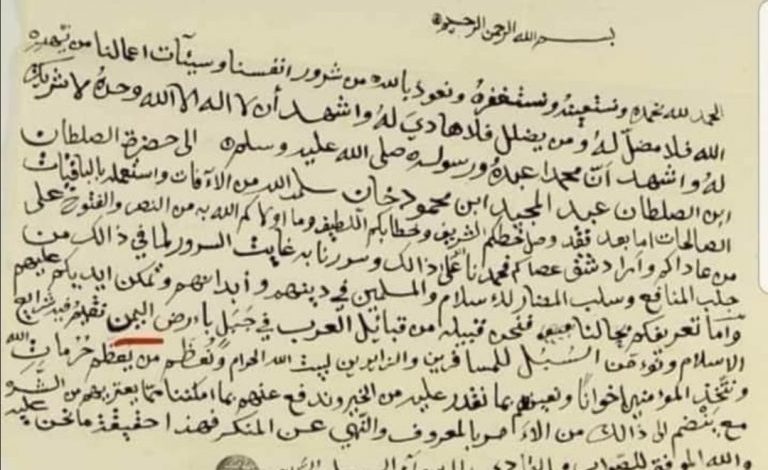 بسم الله الرحمن الرحيم
الحمد لله نحمده ونستعينه ونستغفره ونعوذ بالله من شرور انفسنا وسيئآت اعمالنا من يهده
الله فلا مضلّ له ومن يضلل فلا هادي له واشهد أن لا اله الا الله وحده لا شريك
له واشهد انّ محمدا عبده ورسوله صلى الله عليه وسلم الى حضرة الصلطان
ابن الصلطان عبد المجيد ابن محمود خان سلمه الله من الآفات واستعمله بالباقيات
الصالحات اما بعد فقد وصل خطكم الشريف وخطابكم اللطيف وما اولاكم الله به من النصر والفتوح على
من عاداكم وأراد شق عصاكم فحمدنا على ذالك وسورنا به غايت السرور لما في ذالك من
جلب المنافع وسلب المضار للاسلام والمسلمين في دينهم وأبدانهم وتمكن ايديكم عليهم
وأما تعريفكم بحالنا فنحن قبيله من قبائل العرب في جبل بارض اليمن نقيم فيه شرايع
الاسلام ونؤمن السبل للمسافرين والزايرين لبيت الله الحرام ونعظم من يعظم حرمات الله
ونتخذ المؤمنين اخوانا ونعينهم بما نقدر عليه من الخير وندفع عنهم بما امكننا مما يعتريهم من الشر
مع ينضم الى ذالك من الامر بالمعروف والنهي عن المنكر فهذا حقيقة ما نحن عليه
والله الموفق للصواب